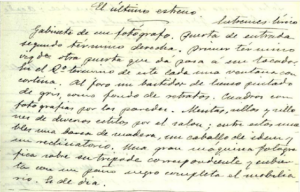 El último estreno
Entremés lírico
Gabinete de un fotógrafo. Puerta de entrada
segundo término derecha. Primer término
izqda otra puerta que da paso a un tocador.
En el 2º término de este lado una ventana con
cortina. Al foro, un bastidor de lienzo pintado
de gris, como fondo de retratos. Cuadros con
fotografías por las paredes. Mesitas, sillas y sillo-
nes de diversos estilos por el salón, entre estos mue-
bles una barca de madera, un caballo de idem y
un reclinatorio. Una gran máquina fotográ-
fica sobre su trípode correspondiente y cubier-
ta con un paño negro completa el mobilia-
rio. Es de día.